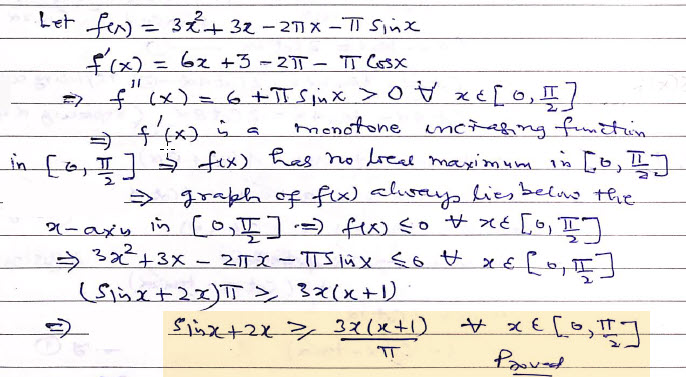 Let f(x) = 3x² + 3x - 2πx - π Sinx
f'(x) = 6x + 3 - 2π - π Cosx
⇒ f''(x) = 6 + π Sinx > 0 ∀ x ∈ [0, π/2]
⇒ f'(x) is a monotone increasing function
in [0, π/2] ⇒ f(x) has no local maximum in [0, π/2]
⇒ graph of f(x) always lies below the
x-axis in [0, π/2] ⇒ f(x) ≤ 0 ∀ x ∈ [0, π/2]
⇒ 3x² + 3x - 2πx - π Sinx ≤ 0 ∀ x ∈ [0, π/2]
(Sinx + 2x)π ≥ 3x(x+1)
⇒ Sinx + 2x ≥ 3x(x+1)/π ∀ x ∈ [0, π/2]
Proved